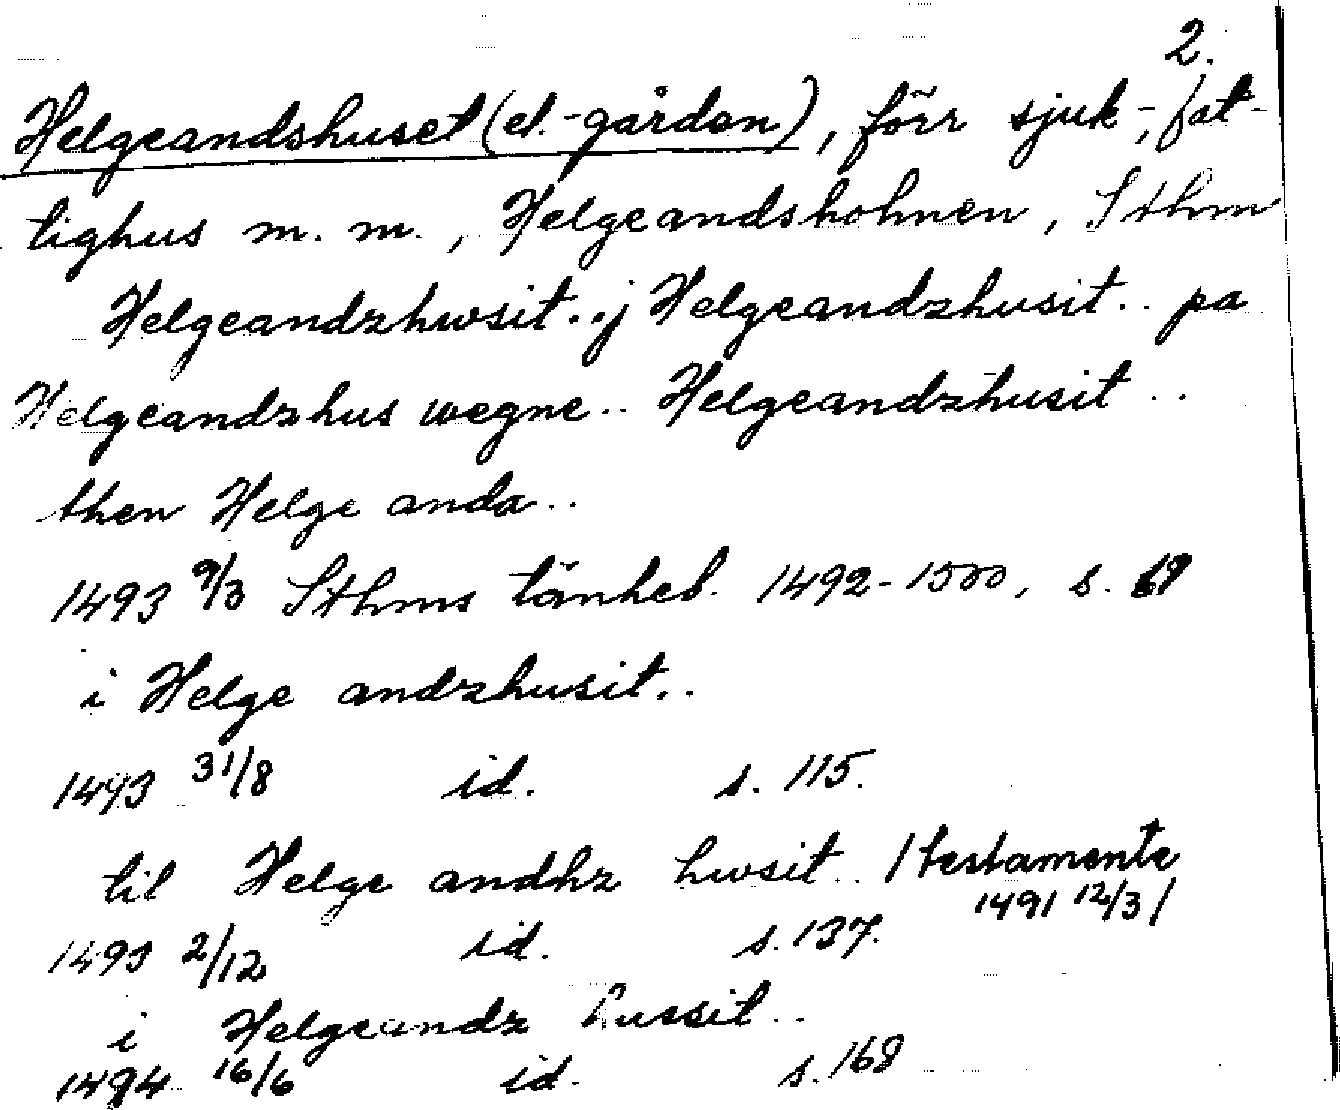 2.
Helgeandshuset (el. -gården), förr sjuk-, fat-
tighus m. m., Helgeandsholmen, Sthm
Helgeandzhwsit.. j Helgeandzhusit.. pa
Helgeandzhus wegne.. Helgeandzhusit..
then Helge anda..
1493 9/3 Sthms tänkeb. 1492-1500, s. 69
i Helge andzhusit..
1493 31/8 id. s. 115.
til Helge andhz hwsit.. / testamente
1491 12/3 /
1493 2/12 id. s. 137.
i Helgeandz hussit..
1494 16/6 id. s. 168